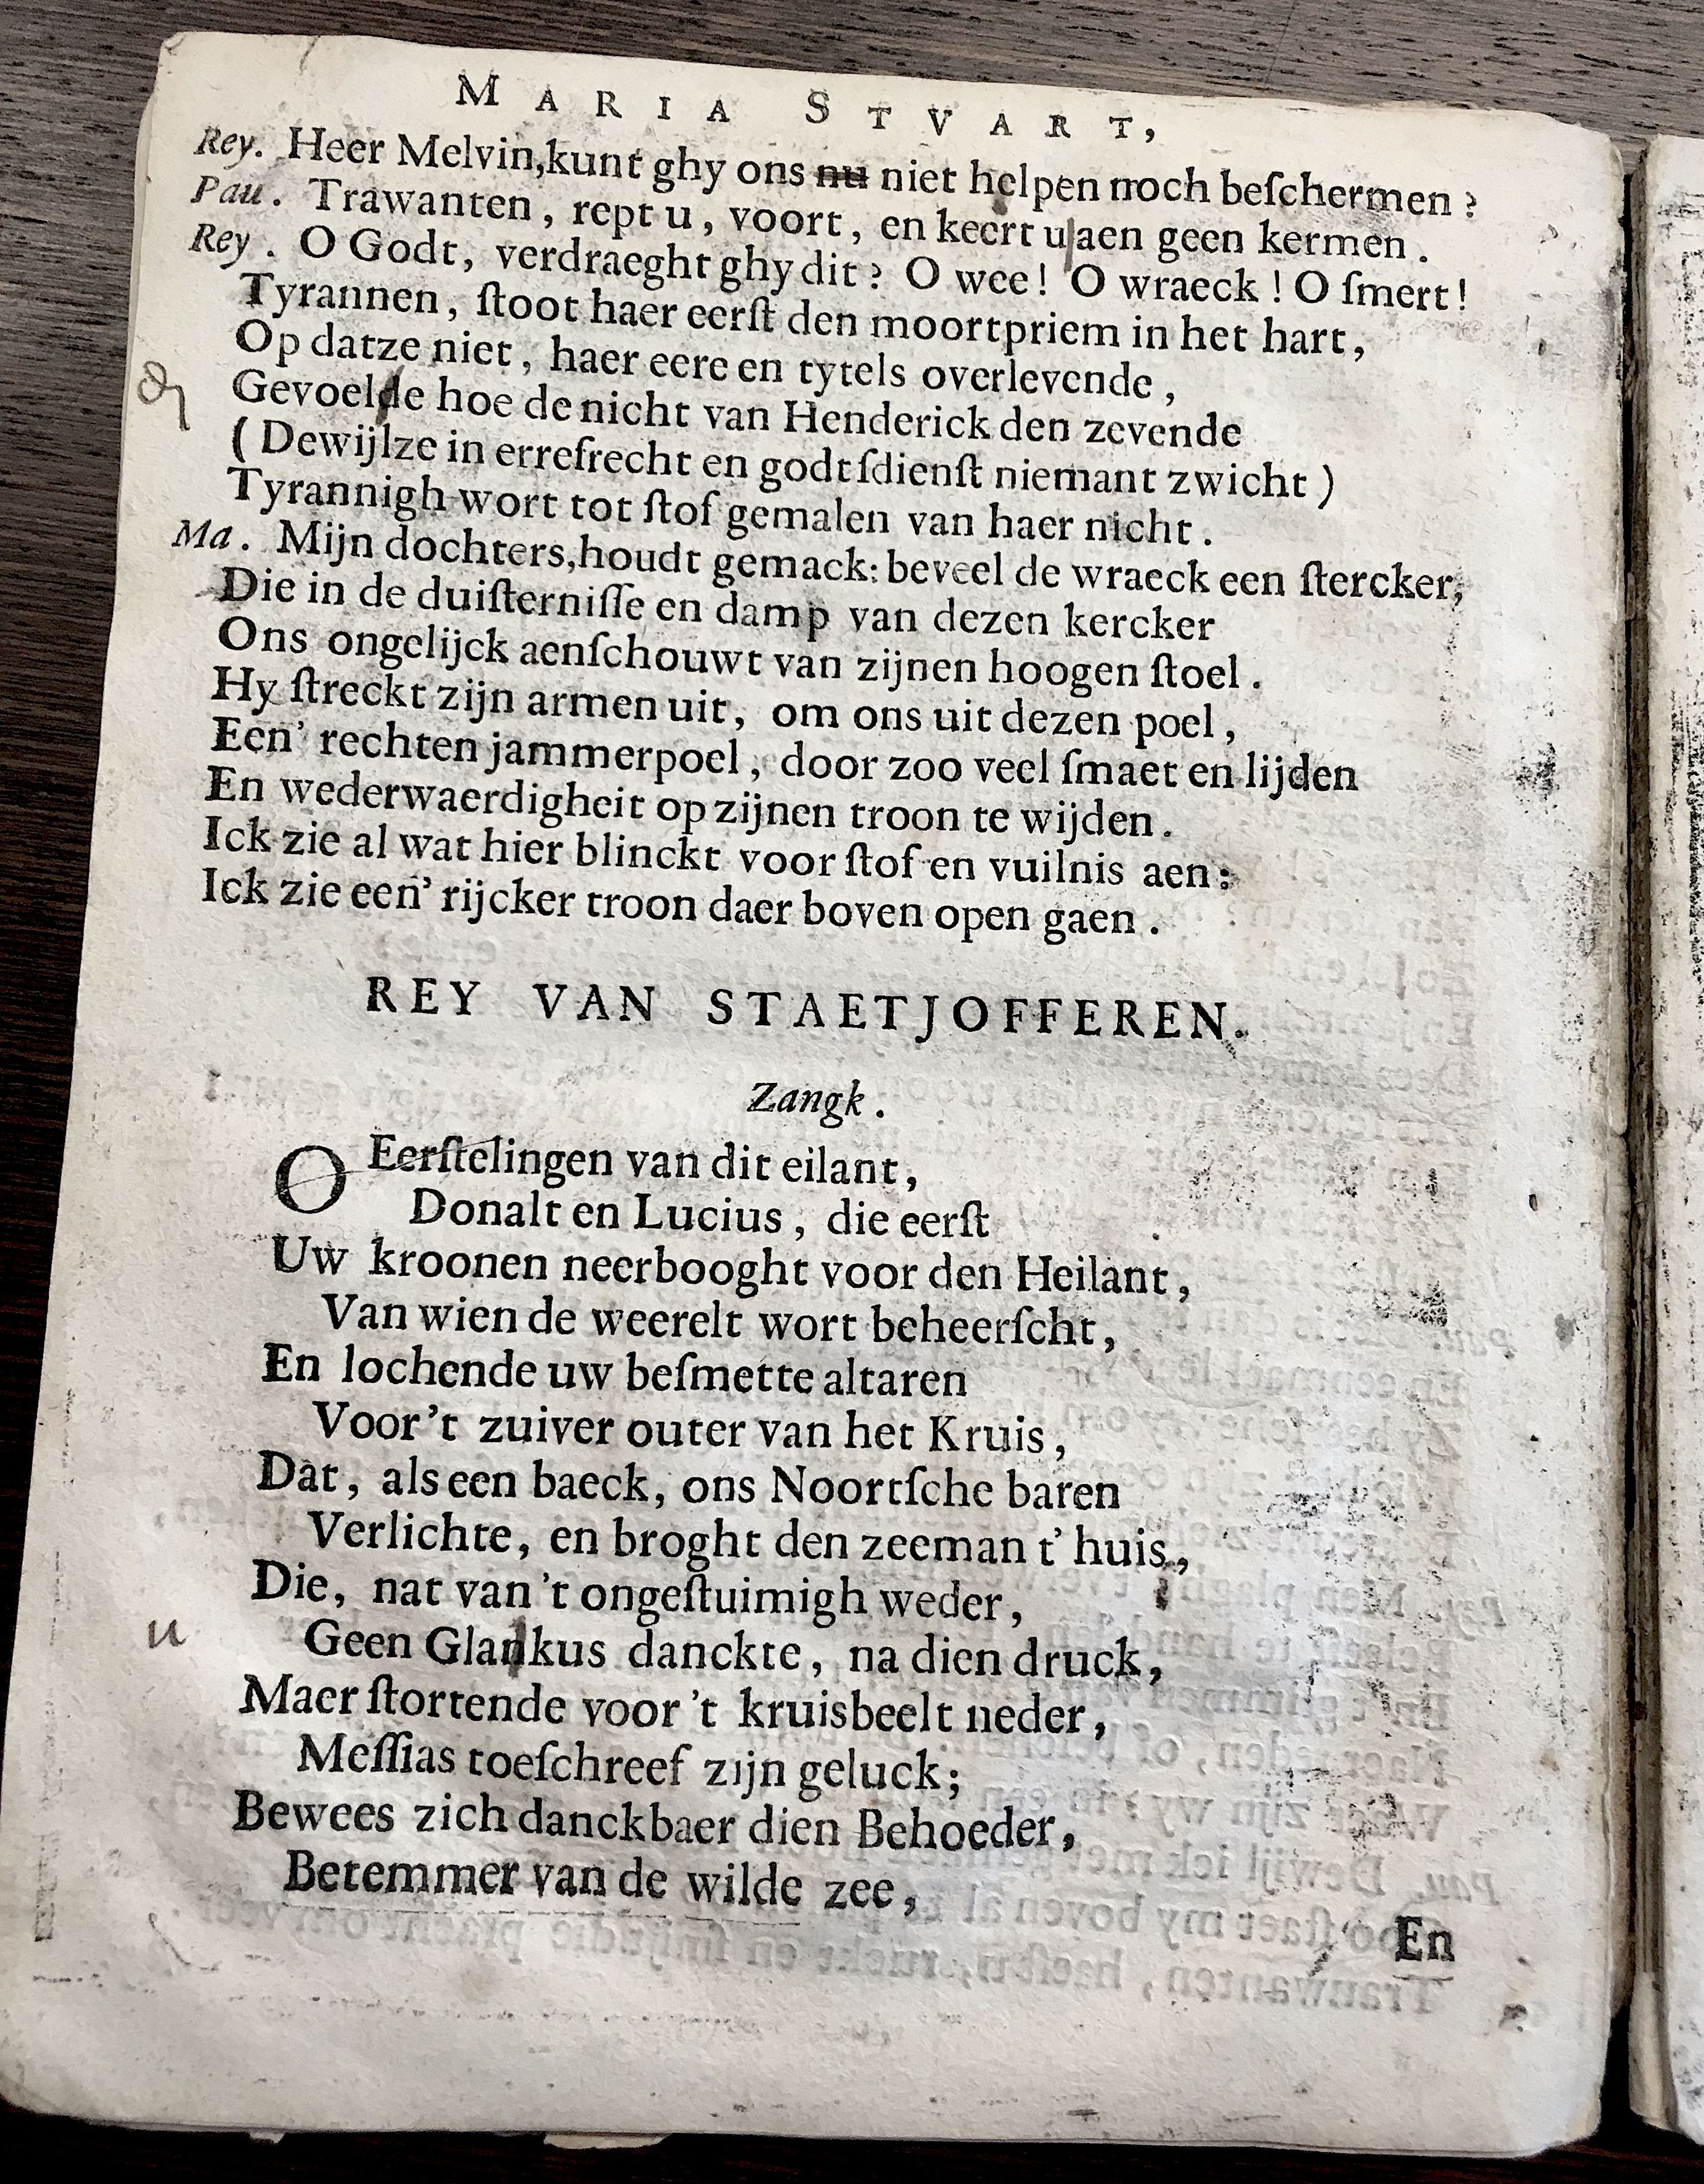 MARIA STVART,
Rey. Heer Melvin, kunt ghy ons nu niet helpen noch beſchermen?
Pau. Trawanten, rept u, voort, en keert u aen geen kermen.
Rey. O Godt, verdraeght ghy dit? O wee! O wraeck! O ſmert!
Tyrannen, ſtoot haer eerſt den moortpriem in het hart,
Op datze niet, haer eere en tytels overlevende,
ꝺ Gevoelde hoe de nicht van Henderick den zevende
(Dewijlze in errefrecht en godtſdienſt niemant zwicht)
Tyrannigh wort tot ſtof gemalen van haer nicht.
Ma. Mijn dochters, houdt gemack: beveel de wraeck een ſtercker,
Die in de duiſterniſſe en damp van dezen kercker
Ons ongelijck aenſchouwt van zijnen hoogen ſtoel.
Hy ſtreckt zijn armen uit, om ons uit dezen poel,
Een' rechten jammerpoel, door zoo veel ſmaet en lijden
En wederwaerdigheit op zijnen troon te wijden.
Ick zie al wat hier blinckt voor ſtof en vuilnis aen:
Ick zie een' rijcker troon daer boven open gaen.
REY VAN STAETJOFFEREN.
Zangk.
O Eerſtelingen van dit eilant,
Donalt en Lucius, die eerſt
Uw kroonen neerbooght voor den Heilant,
Van wien de weerelt wort beheerſcht,
En lochende uw beſmette altaren
Voor 't zuiver outer van het Kruis,
Dat, als een baeck, ons Noortſche baren
Verlichte, en broght den zeeman t' huis,
Die, nat van 't ongeſtuimigh weder,
u Geen Glankus danckte, na dien druck,
Maer ſtortende voor 't kruisbeelt neder,
Meſſias toeſchreef zijn geluck;
Bewees zich danckbaer dien Behoeder,
Betemmer van de wilde zee,
En